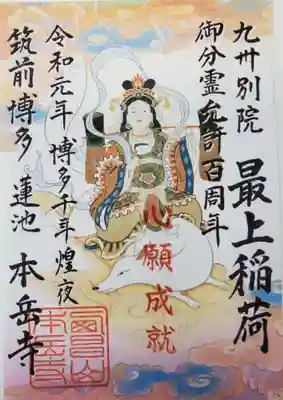 九卅別院
最上稲荷
御分霊允許百周年
心願成就
令和元年 博多千年煌夜
筑前博多 蓮池 本岳寺